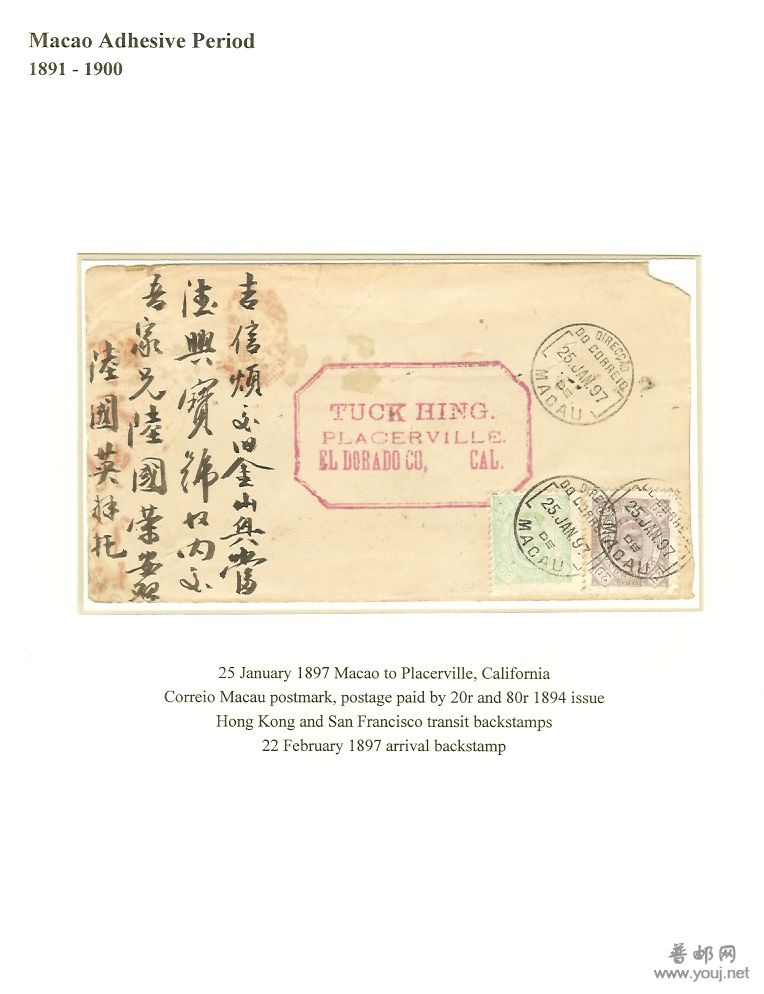 Macao Adhesive Period
1891 - 1900
吉信煩交旧金山
興寶號收內交
吾家兄陸國榮
陸國英拜托
TUCK HING.
PLACERVILLE.
EL DORADO CO, CAL.
DIRECÇÃO
DO CORREIO
25 JAN. 97
DE
MACAU
DO CORREIO
25 JAN. 97
DE
MACAU
25 JAN. 97
DE
MACAU
25 January 1897 Macao to Placerville, California
Correio Macau postmark, postage paid by 20r and 80r 1894 issue
Hong Kong and San Francisco transit backstamps
22 February 1897 arrival backstamp
普邮网
www.youj.net